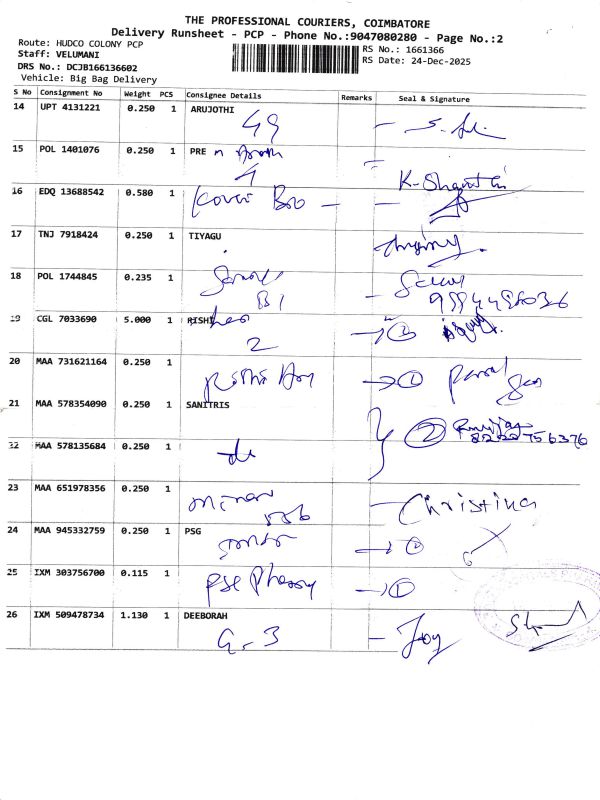 THE PROFESSIONAL COURIERS, COIMBATORE
Delivery Runsheet - PCP - Phone No.:9047080280 - Page No.:2
Route: HUDCO COLONY PCP
Staff: VELUMANI
DRS No.: DCJB166136602
Vehicle: Big Bag Delivery
RS No.: 1661366
RS Date: 24-Dec-2025
S No Consignment No Weight PCS Consignee Details Remarks Seal & Signature
14 UPT 4131221 0.250 1 ARUJOTHI
49
15 POL 1401076 0.250 1 PRE
4 K-Shanthi
16 EDQ 13688542 0.580 1 Kover Bro
17 TNJ 7918424 0.250 1 TIYAGU
18 POL 1744845 0.235 1
B1 9994486036
19 CGL 7033690 5.000 1 RISHI 1
2
20 MAA 731621164 0.250 1
1
21 MAA 578354090 0.250 1 SANITRIS
2 8220756376
22 MAA 578135684 0.250 1
23 MAA 651978356 0.250 1
Christina
24 MAA 945332759 0.250 1 PSG
1
25 IXM 303756700 0.115 1
1
26 IXM 509478734 1.130 1 DEEBORAH
G-3 Joy